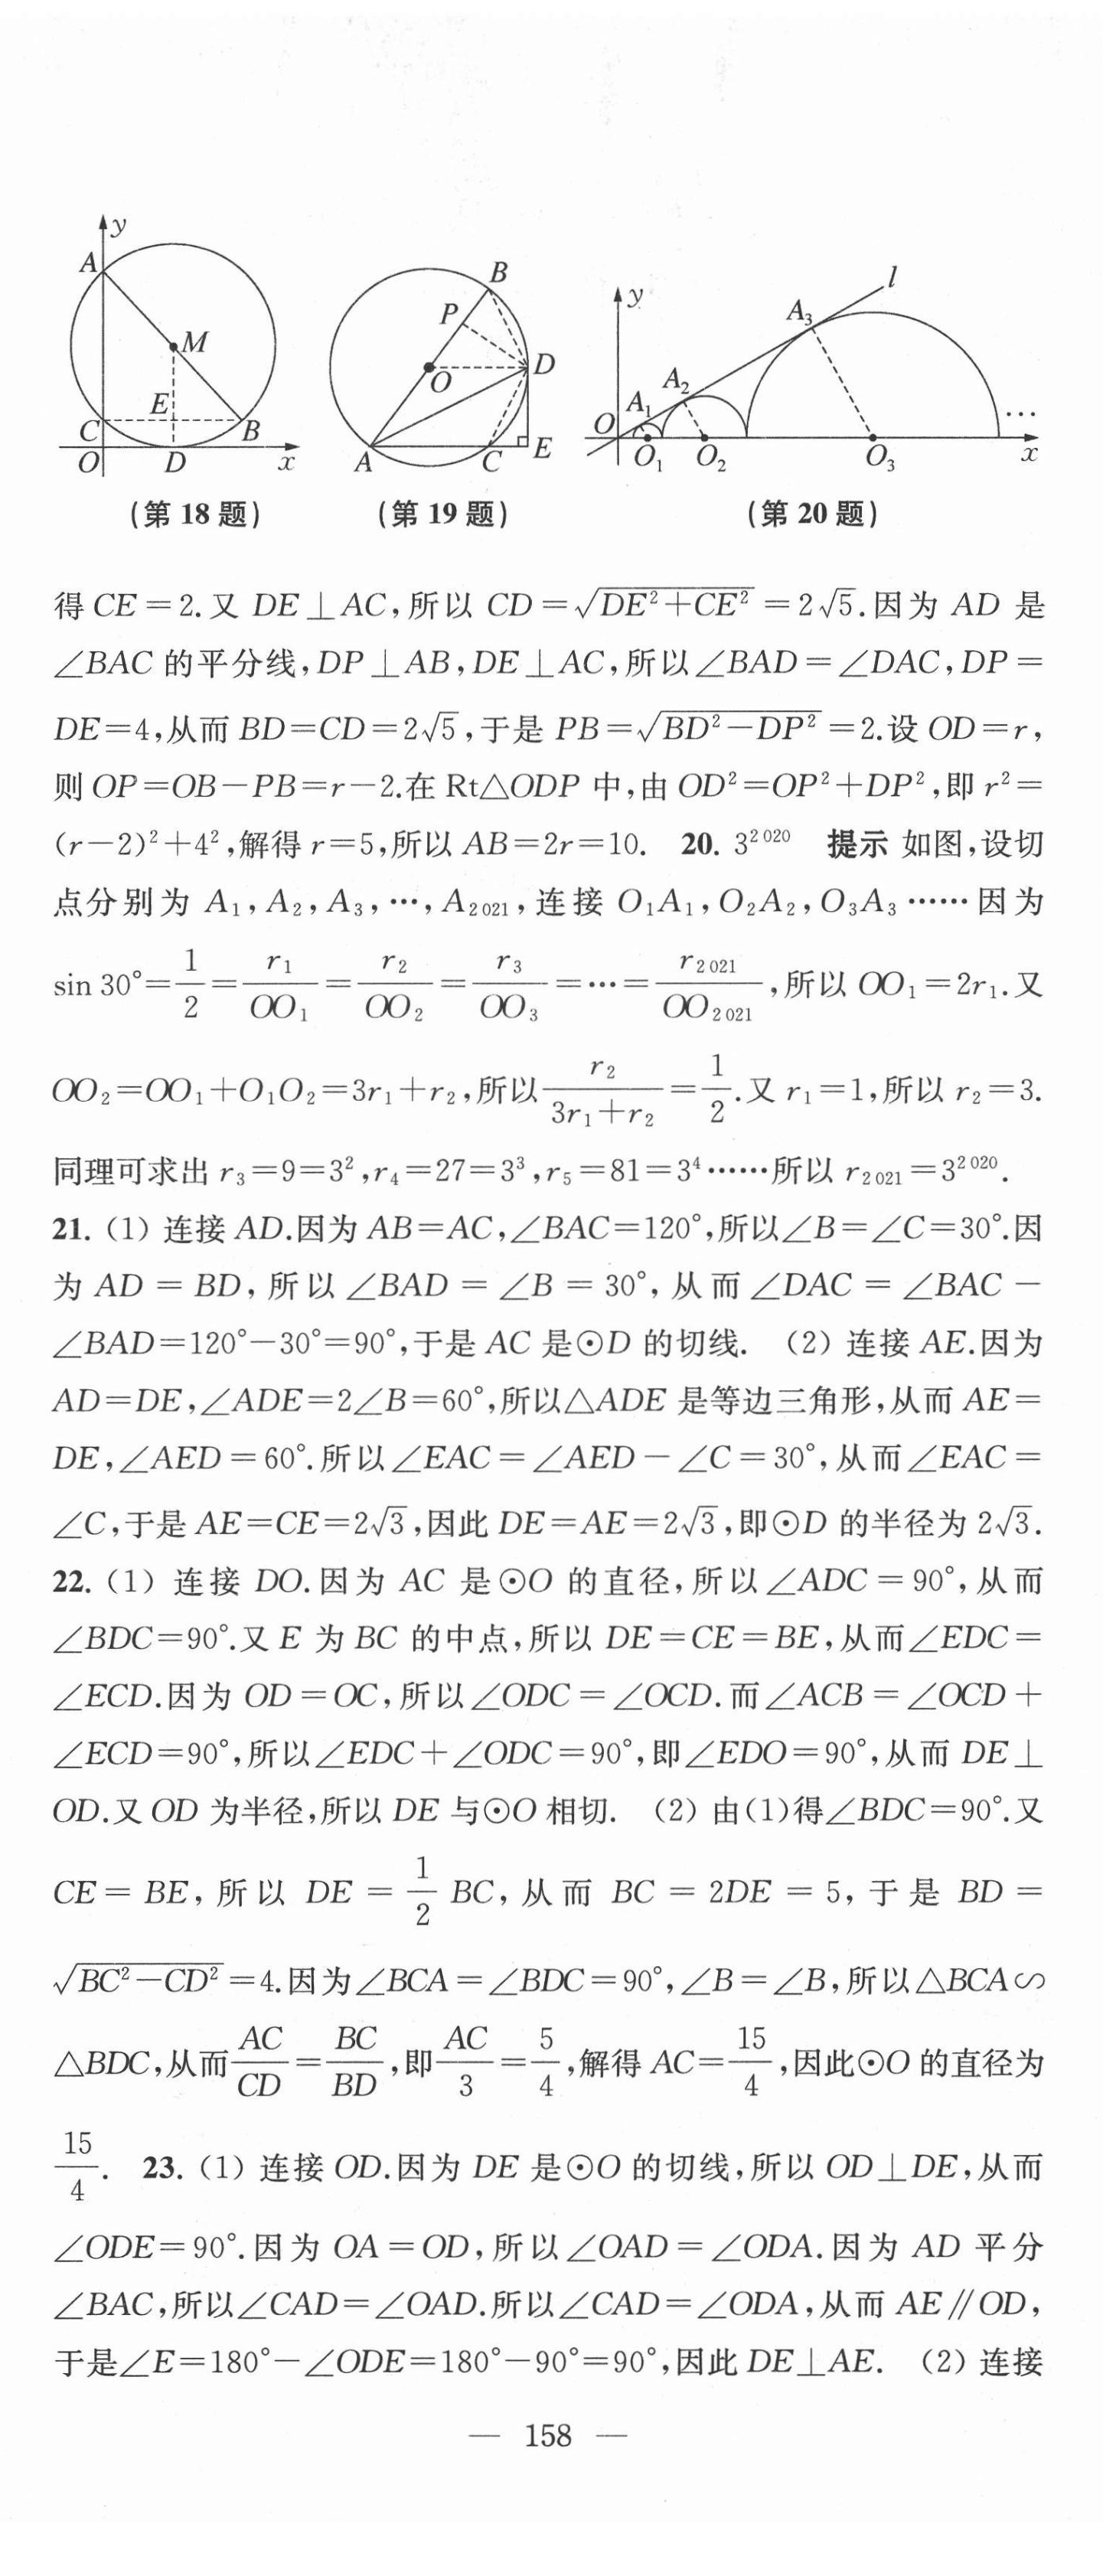 y
A
M
E
C
B
O
D
x
(第 18 题)
B
P
O
D
A
C
E
(第 19 题)
y
l
A₃
A₂
A₁
O
O₁
O₂
O₃
…
x
(第 20 题)
得 CE=2.又 DE⊥AC,所以 CD=√(DE²+CE²)=2√5.因为 AD 是
∠BAC 的平分线,DP⊥AB,DE⊥AC,所以∠BAD=∠DAC,DP=
DE=4,从而 BD=CD=2√5,于是 PB=√(BD²−DP²)=2.设 OD=r,
则 OP=OB−PB=r−2.在 Rt△ODP 中,由 OD²=OP²+DP²,即 r²=
(r−2)²+4²,解得 r=5,所以 AB=2r=10. 20. 3²⁰²⁰ 提示 如图,设切
点分别为 A₁,A₂,A₃,…,A₂₀₂₁,连接 O₁A₁,O₂A₂,O₃A₃……因为
sin 30°=1/2=r₁/OO₁=r₂/OO₂=r₃/OO₃=…=r₂₀₂₁/OO₂₀₂₁,所以 OO₁=2r₁.又
OO₂=OO₁+O₁O₂=3r₁+r₂,所以r₂/(3r₁+r₂)=1/2.又 r₁=1,所以 r₂=3.
同理可求出 r₃=9=3²,r₄=27=3³,r₅=81=3⁴……所以 r₂₀₂₁=3²⁰²⁰.
21. (1) 连接 AD.因为 AB=AC,∠BAC=120°,所以∠B=∠C=30°.因
为 AD=BD,所以∠BAD=∠B=30°,从而∠DAC=∠BAC−
∠BAD=120°−30°=90°,于是 AC 是⊙D 的切线. (2) 连接 AE.因为
AD=DE,∠ADE=2∠B=60°,所以△ADE 是等边三角形,从而 AE=
DE,∠AED=60°.所以∠EAC=∠AED−∠C=30°,从而∠EAC=
∠C,于是 AE=CE=2√3,因此 DE=AE=2√3,即⊙D 的半径为 2√3.
22. (1) 连接 DO.因为 AC 是⊙O 的直径,所以∠ADC=90°,从而
∠BDC=90°.又 E 为 BC 的中点,所以 DE=CE=BE,从而∠EDC=
∠ECD.因为 OD=OC,所以∠ODC=∠OCD.而∠ACB=∠OCD+
∠ECD=90°,所以∠EDC+∠ODC=90°,即∠EDO=90°,从而 DE⊥
OD.又 OD 为半径,所以 DE 与⊙O 相切. (2) 由(1)得∠BDC=90°.又
CE=BE,所以 DE=1/2 BC,从而 BC=2DE=5,于是 BD=
√(BC²−CD²)=4.因为∠BCA=∠BDC=90°,∠B=∠B,所以△BCA∽
△BDC,从而AC/CD=BC/BD,即AC/3=5/4,解得 AC=15/4,因此⊙O 的直径为
15/4. 23. (1) 连接 OD.因为 DE 是⊙O 的切线,所以 OD⊥DE,从而
∠ODE=90°.因为 OA=OD,所以∠OAD=∠ODA.因为 AD 平分
∠BAC,所以∠CAD=∠OAD.所以∠CAD=∠ODA,从而 AE∥OD,
于是∠E=180°−∠ODE=180°−90°=90°,因此 DE⊥AE. (2) 连接
— 158 —